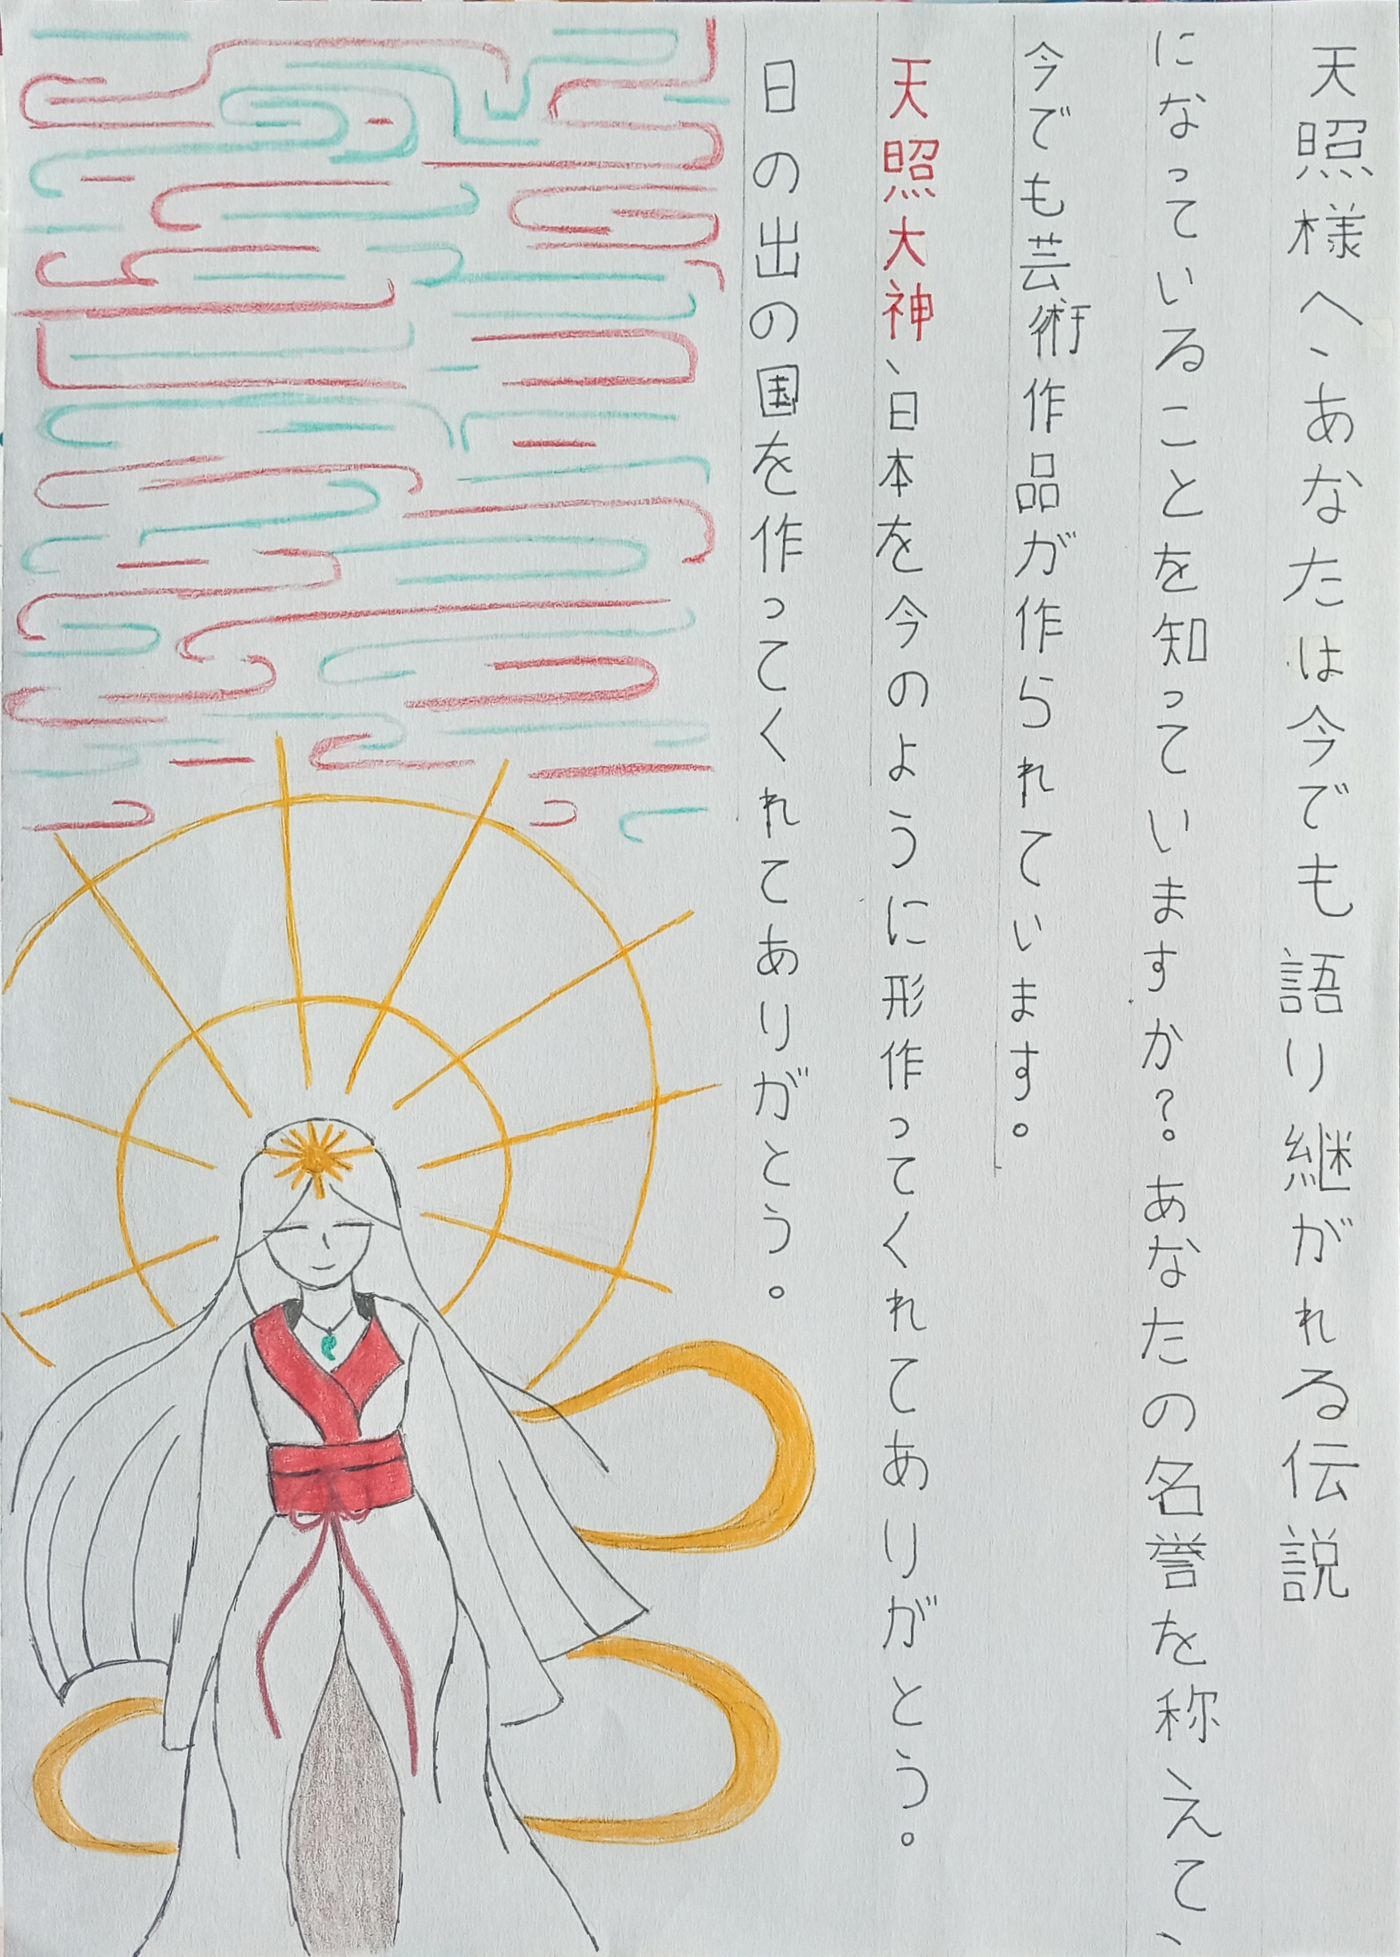 天照様へ、あなたは今でも語り継がれる伝説
になっていることを知っていますか？。あなたの名誉を称えて、
今でも芸術作品が作られています。
天照大神、日本を今のように形作ってくれてありがとう。
日の出の国を作ってくれてありがとう。